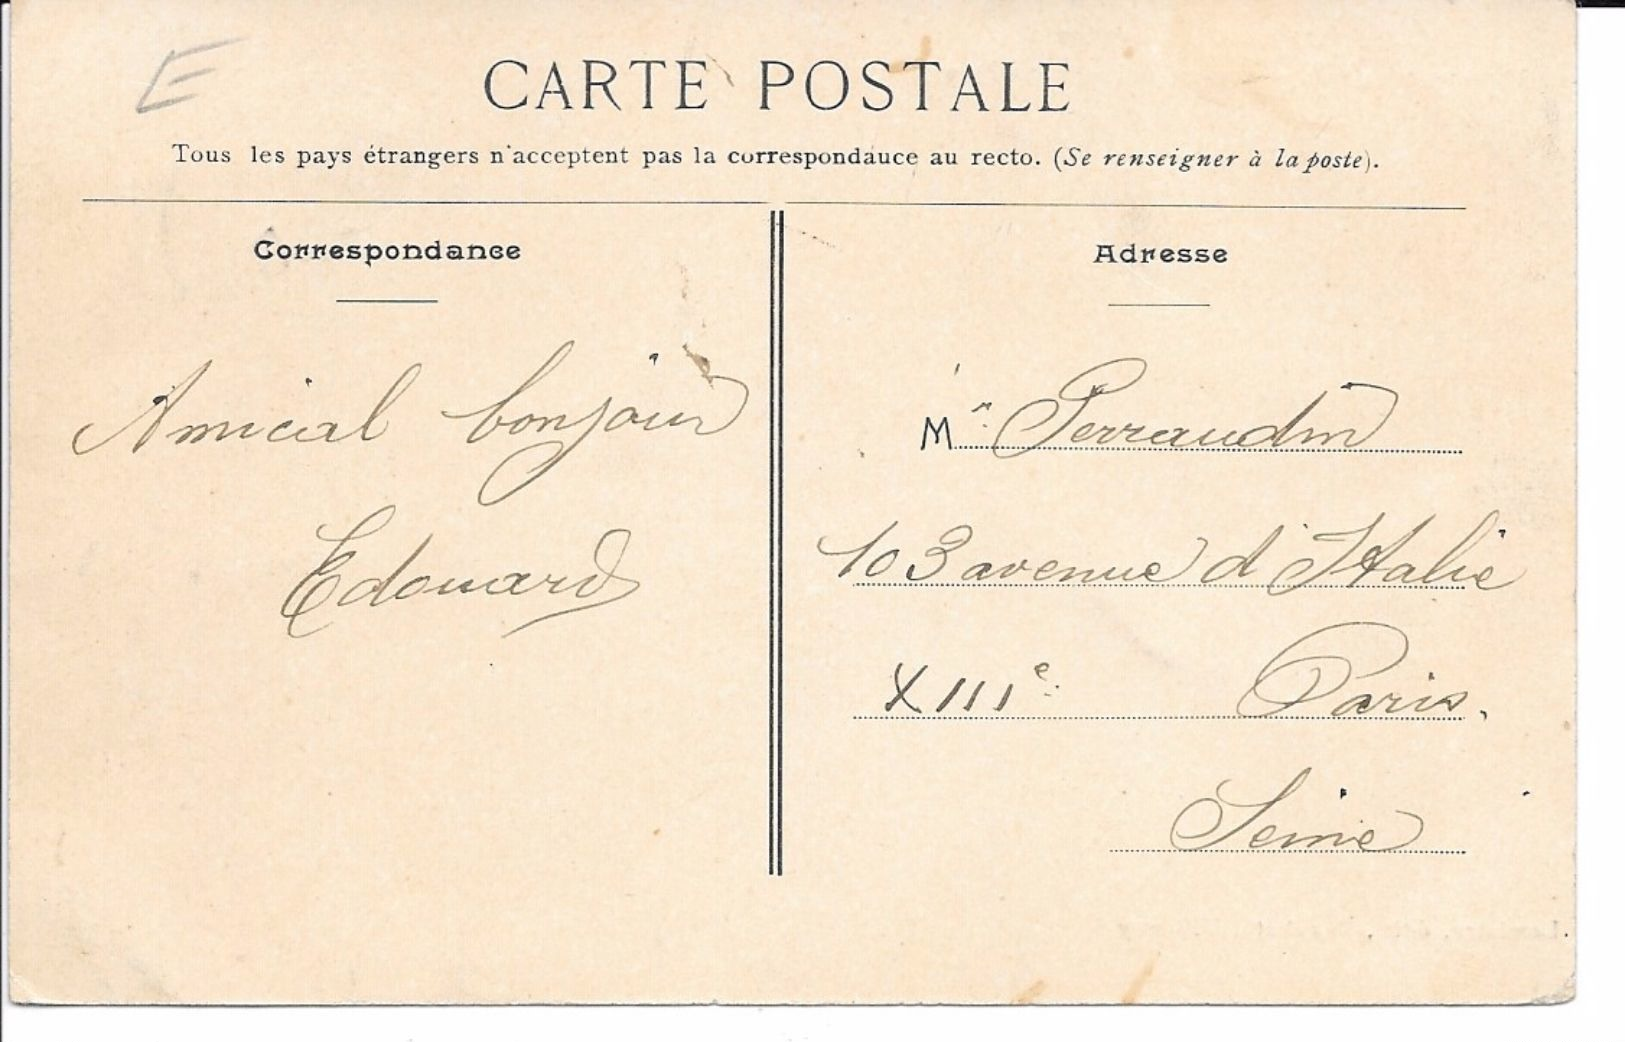 E
CARTE POSTALE
Tous les pays étrangers n'acceptent pas la correspondauce au recto. (Se renseigner à la poste).
Correspondance
Amical bonjour
Edouard
Adresse
Mr Perraudin
103 avenue d'Italie
XIIIe Paris.
Seine